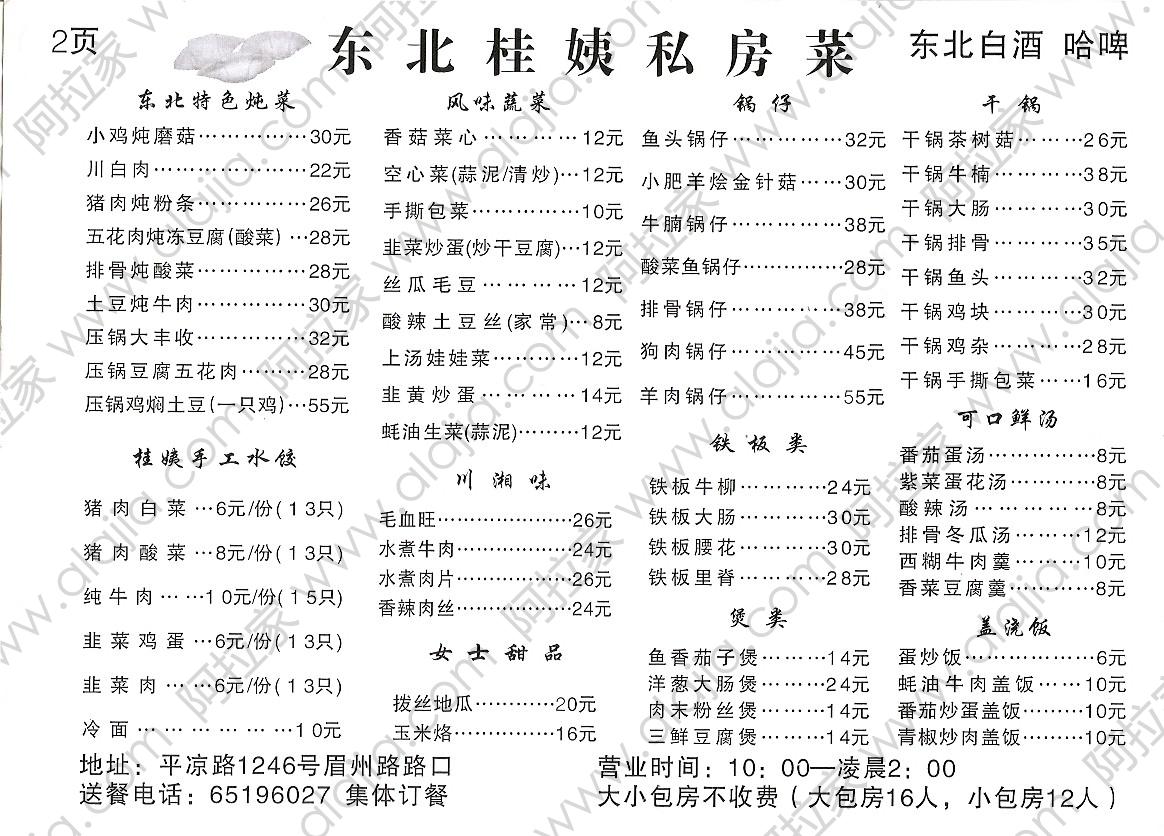 2页
东北桂姨私房菜
东北白酒 哈啤
东北特色炖菜
小鸡炖磨菇……………30元
川白肉…………………22元
猪肉炖粉条……………26元
五花肉炖冻豆腐(酸菜)…28元
排骨炖酸菜……………28元
土豆炖牛肉……………30元
压锅大丰收……………32元
压锅豆腐五花肉………28元
压锅鸡焖土豆(一只鸡)…55元
桂姨手工水饺
猪肉白菜…6元/份(13只)
猪肉酸菜…8元/份(13只)
纯牛肉……10元/份(15只)
韭菜鸡蛋…6元/份(13只)
韭菜肉……6元/份(13只)
冷面………………10元
风味蔬菜
香菇菜心…………12元
空心菜(蒜泥/清炒)…12元
手撕包菜……………10元
韭菜炒蛋(炒干豆腐)…12元
丝瓜毛豆…………12元
酸辣土豆丝(家常)…8元
上汤娃娃菜…………12元
韭黄炒蛋…………14元
蚝油生菜(蒜泥)………12元
川湘味
毛血旺………………26元
水煮牛肉……………24元
水煮肉片……………26元
香辣肉丝……………24元
女士甜品
拨丝地瓜…………20元
玉米烙……………16元
锅仔
鱼头锅仔……………32元
小肥羊烩金针菇……30元
牛腩锅仔……………38元
酸菜鱼锅仔……………28元
排骨锅仔……………38元
狗肉锅仔……………45元
羊肉锅仔……………55元
铁板类
铁板牛柳…………24元
铁板大肠…………30元
铁板腰花…………30元
铁板里脊…………28元
煲类
鱼香茄子煲………14元
洋葱大肠煲………24元
肉末粉丝煲………14元
三鲜豆腐煲………14元
干锅
干锅茶树菇………26元
干锅牛楠…………38元
干锅大肠…………30元
干锅排骨…………35元
干锅鱼头…………32元
干锅鸡块…………30元
干锅鸡杂…………28元
干锅手撕包菜……16元
可口鲜汤
番茄蛋汤……………8元
紫菜蛋花汤…………8元
酸辣汤………………8元
排骨冬瓜汤………12元
西糊牛肉羹………10元
香菜豆腐羹…………8元
盖浇饭
蛋炒饭………………6元
蚝油牛肉盖饭……10元
番茄炒蛋盖饭………10元
青椒炒肉盖饭………10元
地址：平凉路1246号眉州路路口
送餐电话：65196027 集体订餐
营业时间：10：00—凌晨2：00
大小包房不收费（大包房16人，小包房12人）
阿拉家 www.alajia.com